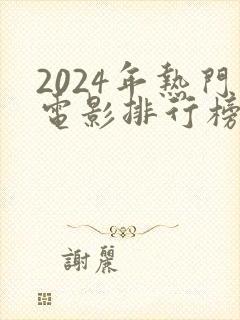 2024年熱門
電影排行榜
謝麗